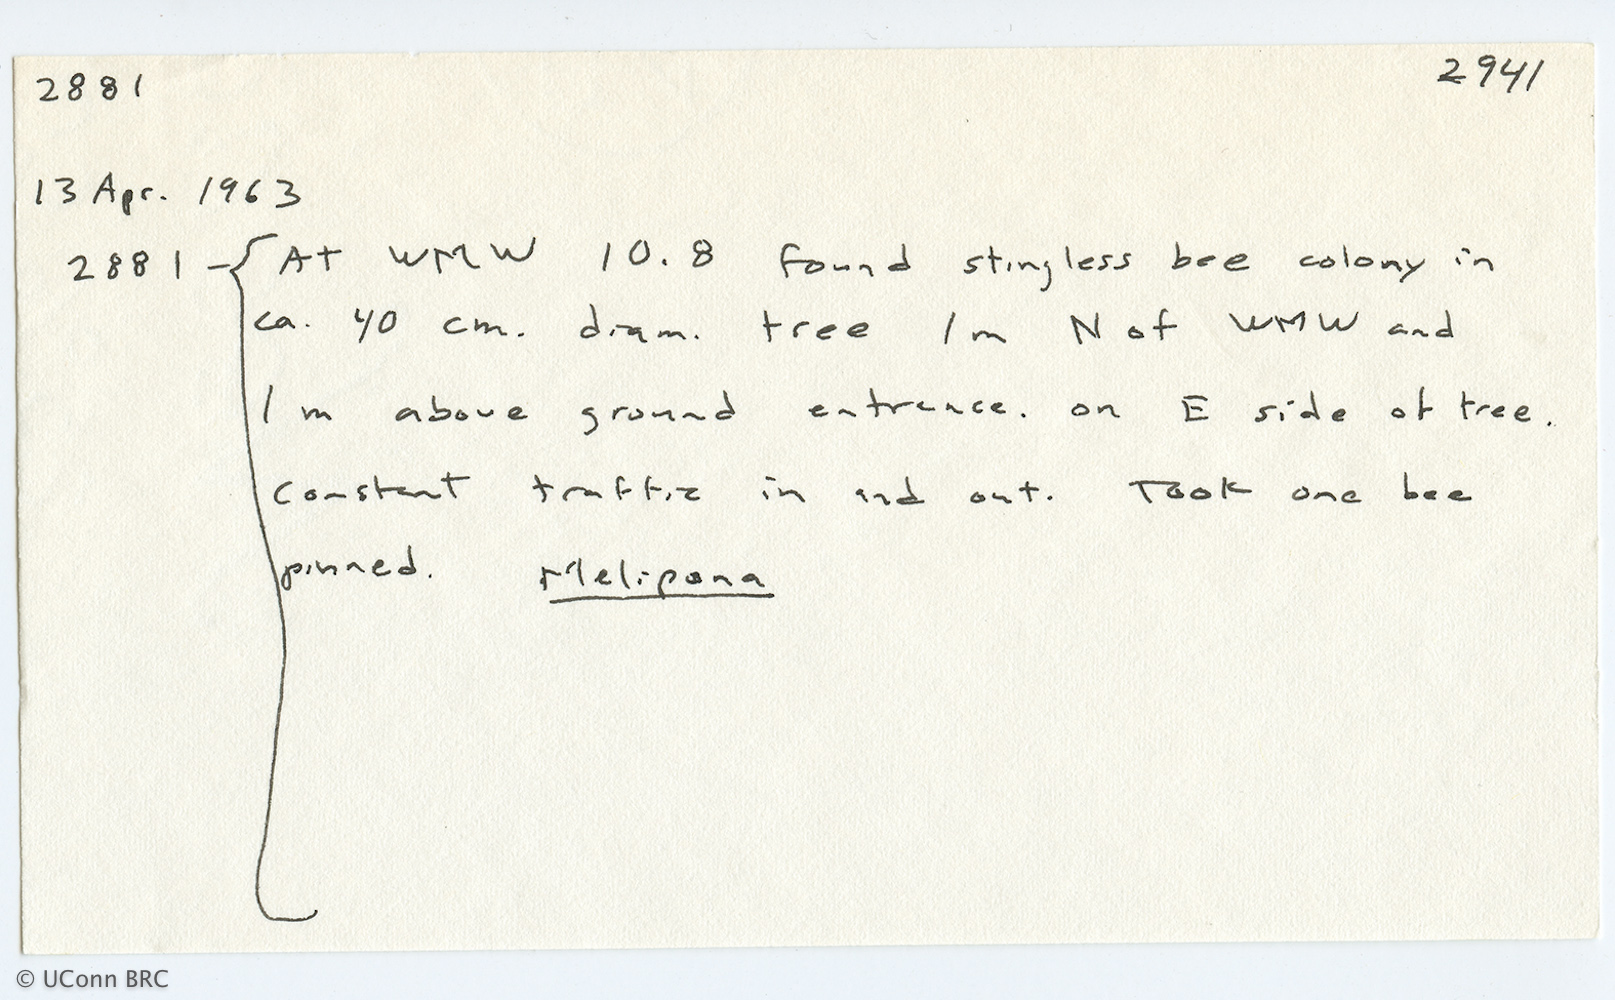 2881 2941
13 Apr. 1963
2881 - { At WMW 10.8 found stingless bee colony in
ca. 40 cm. diam. tree 1m N of WMW and
1m above ground entrance. on E side of tree.
Constant traffic in and out. Took one bee
pinned. Melipona
© UConn BRC